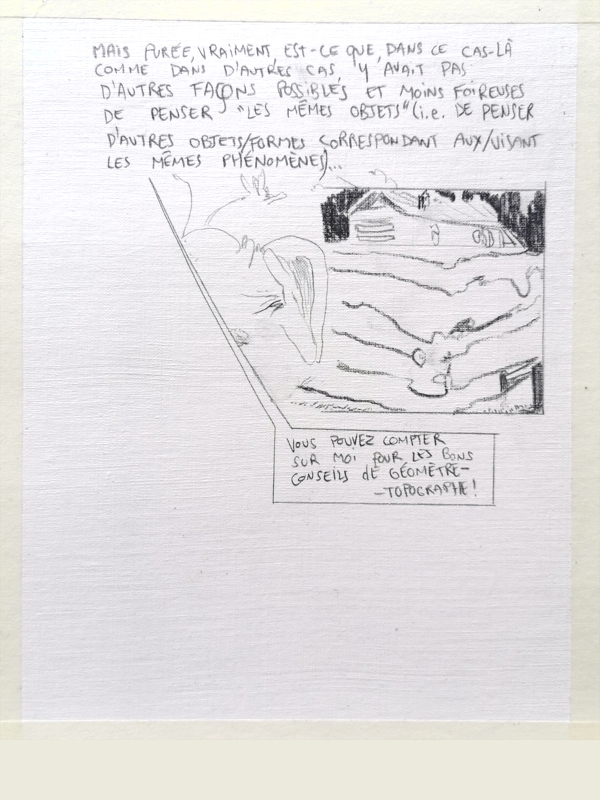 MAIS PURÉE, VRAIMENT, EST-CE QUE, DANS CE CAS-LÀ
COMME DANS D'AUTRES CAS, Y AVAIT PAS
D'AUTRES FAÇONS POSSIBLES ET MOINS FOIREUSES
DE PENSER "LES MÊMES OBJETS" (i.e. DE PENSER
D'AUTRES OBJETS/FORMES CORRESPONDANT AUX/VISANT
LES MÊMES PHÉNOMÈNES)...
VOUS POUVEZ COMPTER
SUR MOI POUR LES BONS
CONSEILS dE GÉOMÈTRE-
-TOPOGRAPHE!